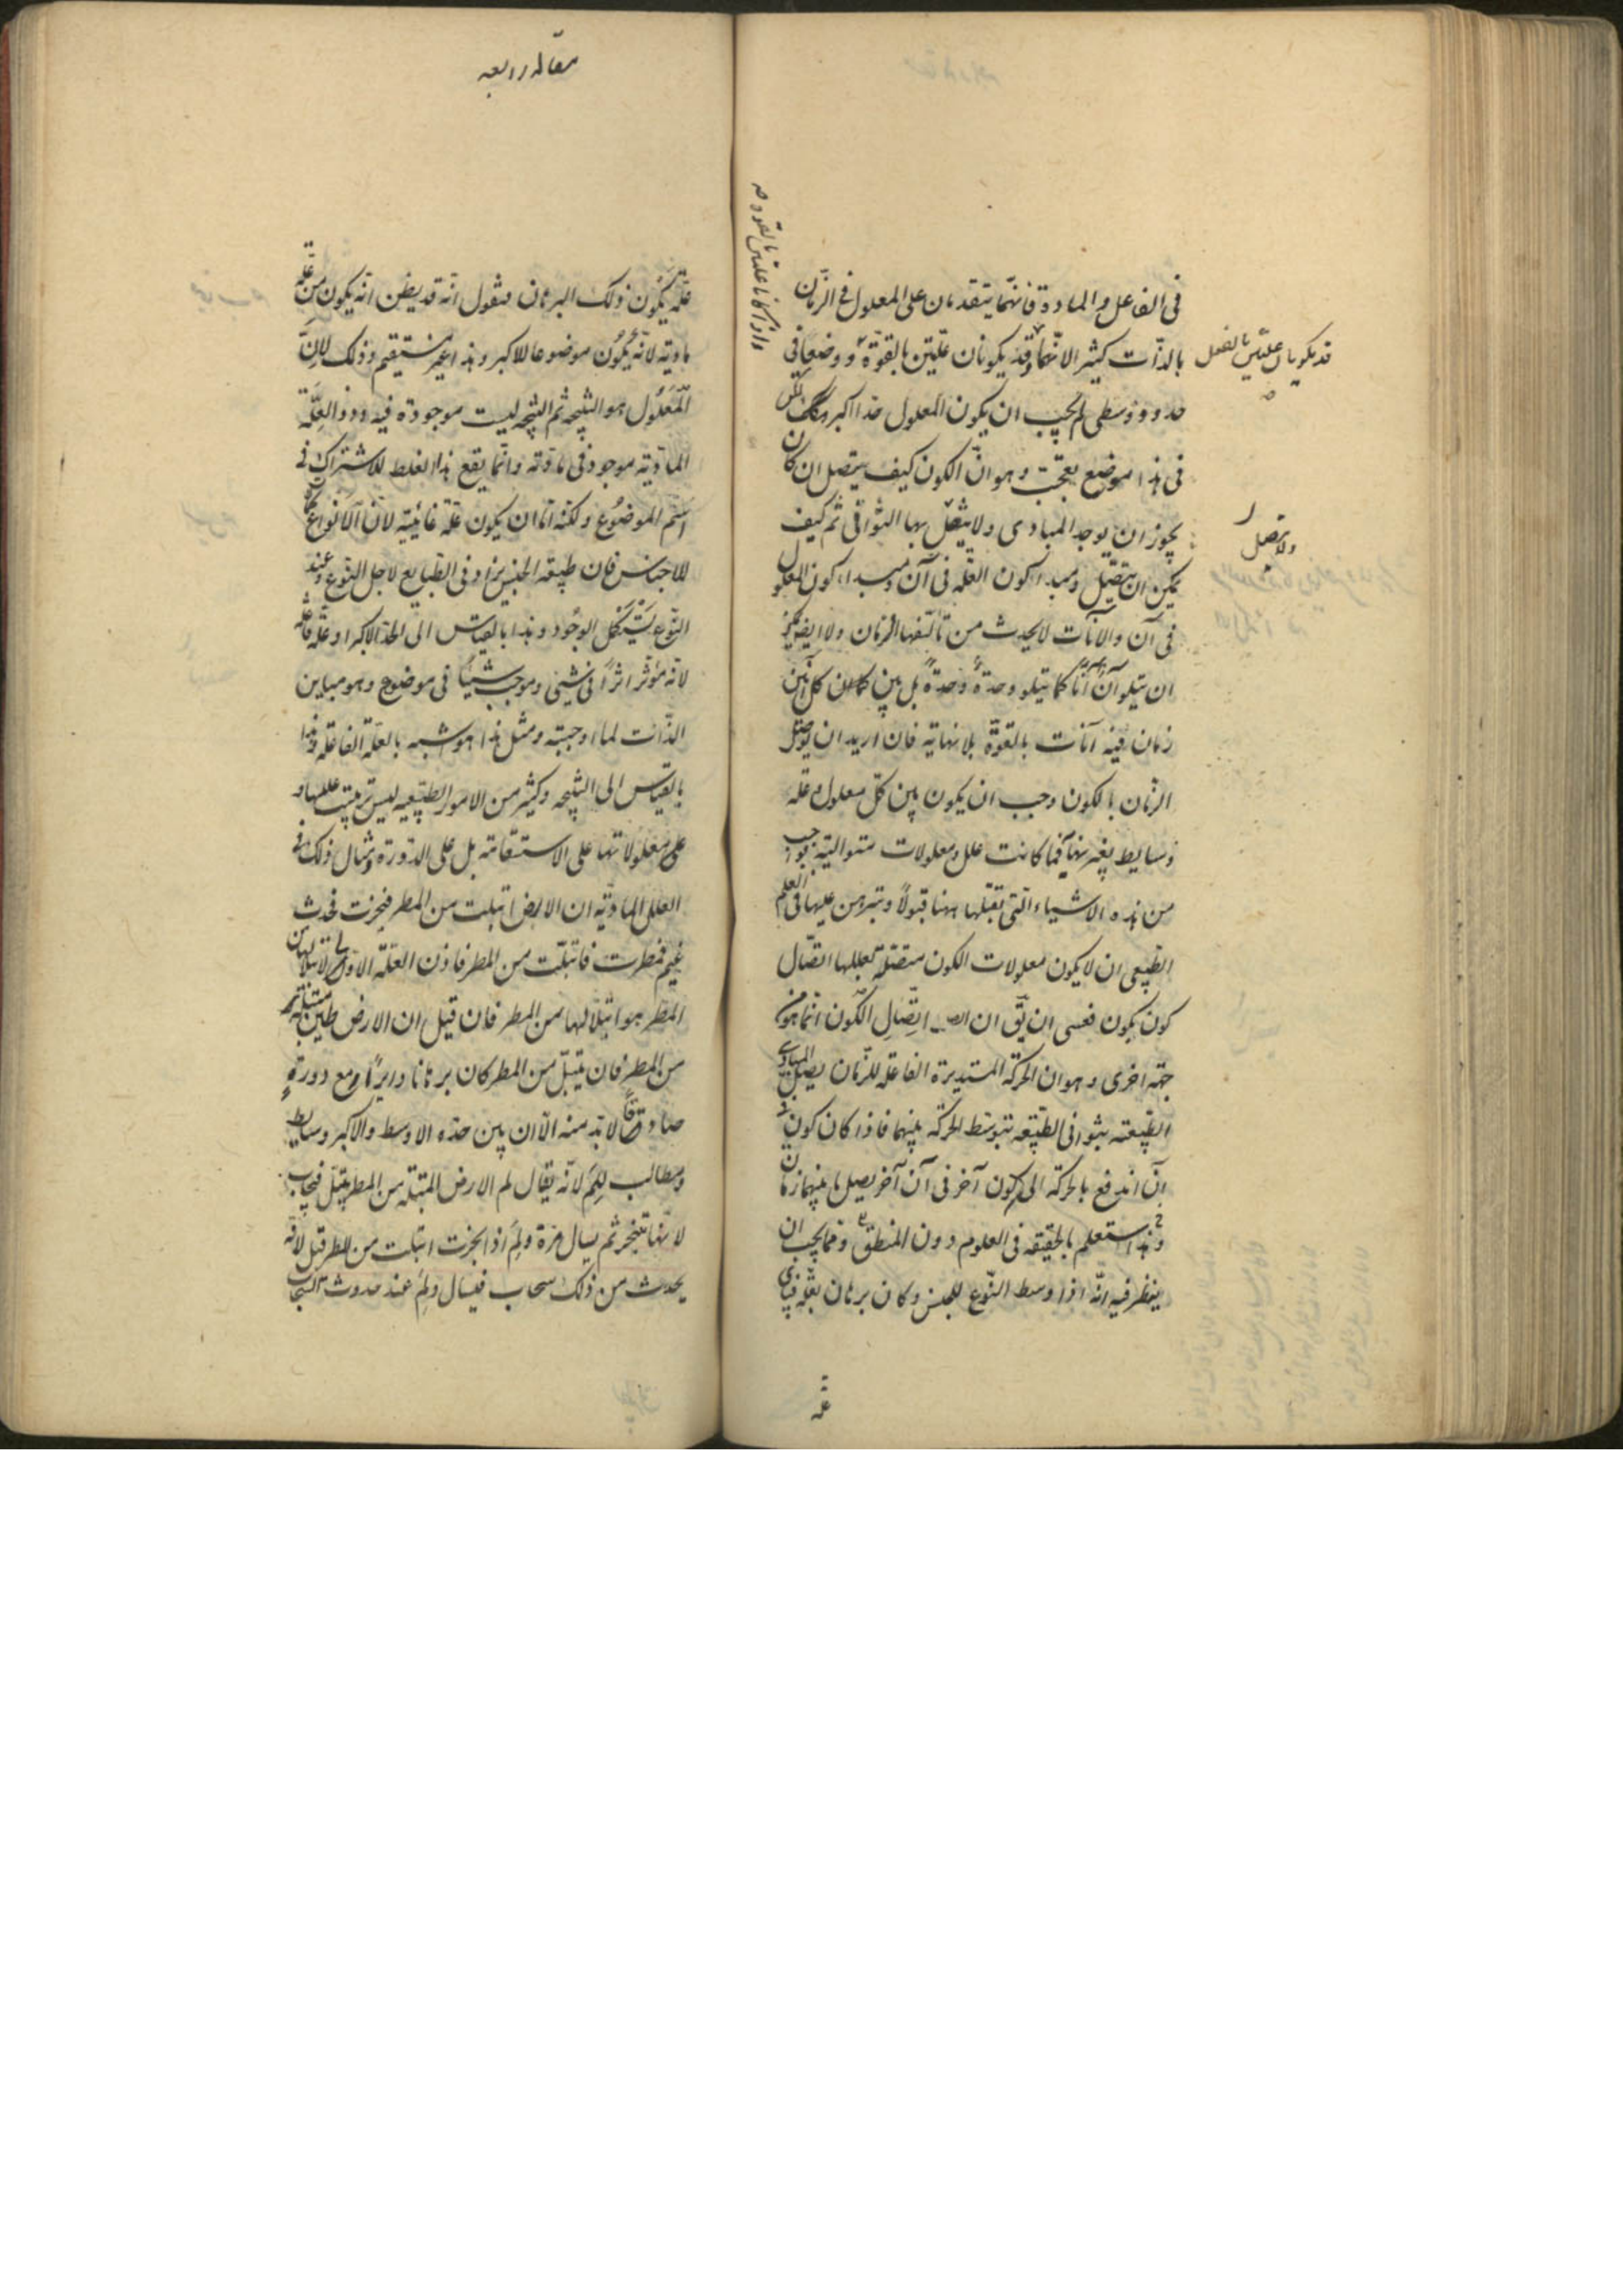 فى الفاعل والمادة فانهما يتقدمان على المعلول فى الزمان
بالذات كثيرا لانهما قد يكونان علتين بالقوة ووضعا فى
قد يكونان علتين بالفعل
واذا كانا علتين بالقوة
حدود وسطى لم يجب ان يكون المعلول حدا اكبر لكن
فى هذا موضع تعجب وهو ان الكون كيف يتصل ان كان
يجوز ان يوجد المبادى ولا يتصل بها الثوانى ثم كيف
ولا يتصل
يمكن ان يتصل ومبدا كون العلة فى آن ومبداء كون المعلول
فى آن والآنات لا يحدث من تأليفها الزمان ولا ايضا يمكن
ان يتلو آن آنا كما يتلو وحدة وحدة بل بين كل آنين
زمان فيه آنات بالقوة بلا نهاية فان اريد ان يوصل
الزمان بالكون وجب ان يكون بين كل معلول وعلة
وسايط بغير نهاية فما كانت علل ومعلولات متوالية بواجب
من هذه الاشياء التى نقبلها ههنا قبولا ونبرهن عليها فى العلم
الطبيعى ان لا يكون معلولات الكون متصلة بعللها اتصال
كون بكون فعسى ان يق ان اتصال الكون انما هو من
جهة اخرى وهو ان الحركة المستديرة الفاعلة للزمان يصل المبادى
الطبيعية بثوانى الطبيعة بتوسط الحركة بينهما فاذا كان كون فى
آن اندفع بالحركة الى كون آخر فى آن آخر يصل ما بينهما زمان
وهذا ستعلم بالحقيقة فى العلوم دون المنطق ومما يجب ان
ينظر فيه انه اذا وسط النوع للجنس وكان برهان بعلة فباى
علة
مقاله رابعه
علة يكون ذلك البرهان فنقول انه قد يظن انه يكون من علة
مادية لانه يكون موضوعا للاكبر وهذا غير مستقيم وذلك لان
المعلول هو النتيجة ثم النتيجة ليست موجودة فيه وذو العلة
المادية موجود فى مادته وانما يقع هذا الغلط للاشتراك فى
اسم الموضوع ولكنه اما ان يكون علة غائية لان الانواع
للاجناس فان طبيعة الجنس يراد فى الطبايع لاجل النوع وعند
النوع يستكمل الوجود وهذا بالقياس الى الحد الاكبر او علة فاعلة
لانه مؤثر اثرا فى شيئ وموجب شيئا فى موضوع وهو مباين
الذات لما اوجبته ومثل هذا هو شبه بالعلة الفاعلة وهذا
بالقياس الى النتيجة وكثير من الامور الطبيعية ليس ترتيب عللها
على معلولاتها على الاستقامة بل على الدورة ومثال ذلك فى
العلل المادية ان الارض ابتلت من المطر فبخرت فحدث
غيم فمطرت فابتلت من المطر فاذن العلة الاولى لابتلالها من
المطر هو ابتلالها من المطر فان قيل ان الارض طين مبتلة
من المطر فان يبتل من المطر كان برهانا دايرا ومع دورة
صادقا لابد منه الا ان بين حده الاوسط والاكبر وسايط
ومطالب للم لانه يقال لم الارض المبتلة من المطر يبتل فيجاب
لانها تتبخر ثم يسال مرة ولم اذا بخرت ابتلت من المطر قيل لانه
يحدث من ذلك سحاب فيسال ولم عند حدوث السحاب